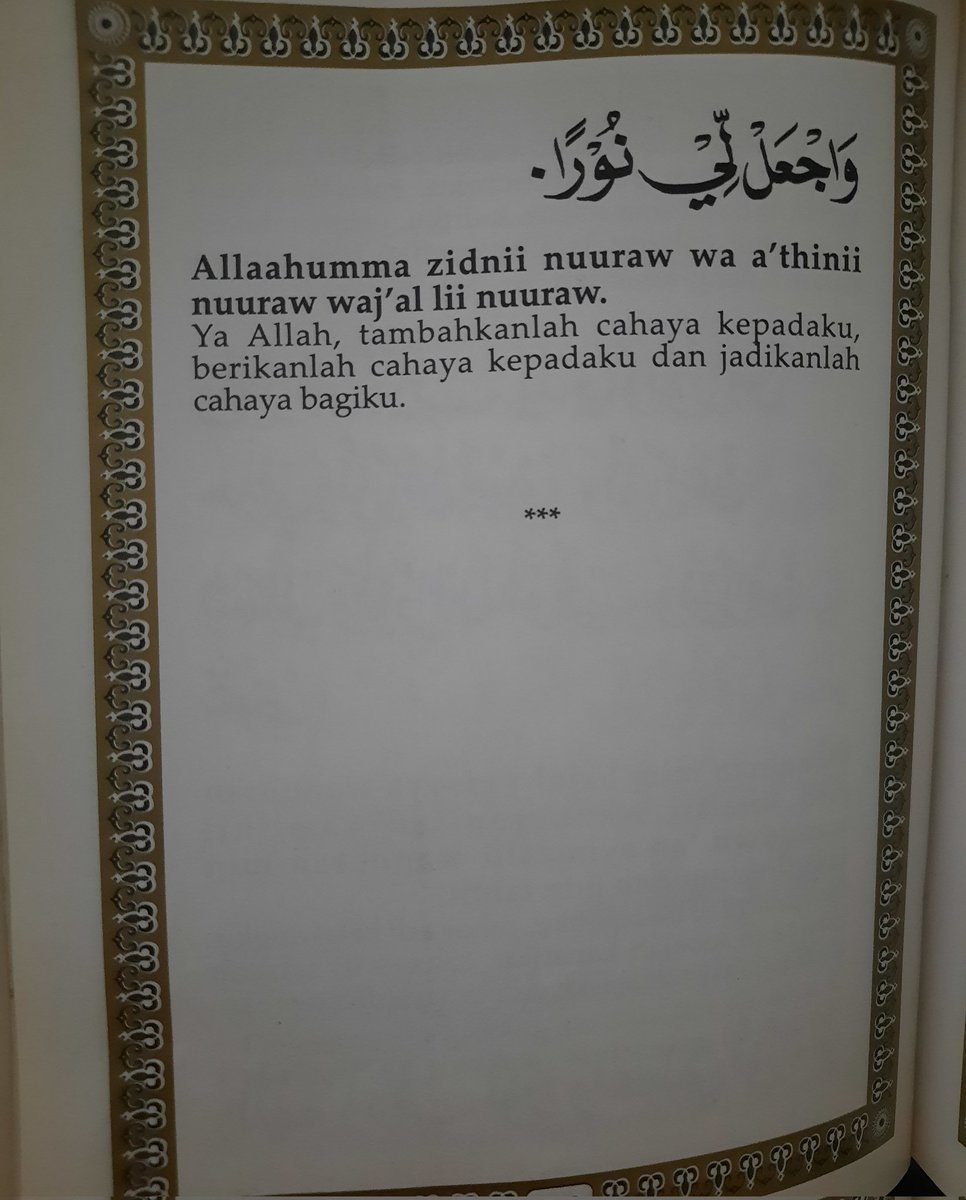 وَاجْعَلْ لِّيْ نُوْرًا.
Allaahumma zidnii nuuraw wa a’thinii
nuuraw waj’al lii nuuraw.
Ya Allah, tambahkanlah cahaya kepadaku,
berikanlah cahaya kepadaku dan jadikanlah
cahaya bagiku.
***